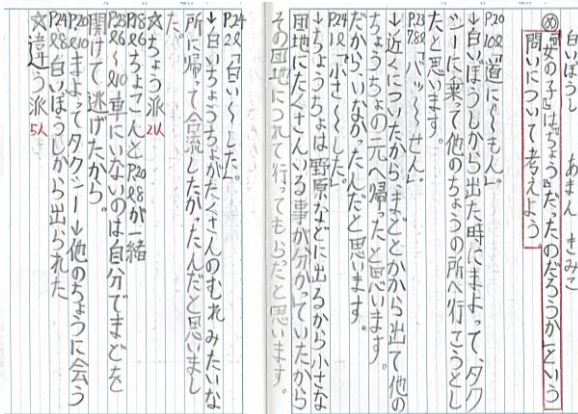 白いぼうし　あまん きみこ
め「女の子」は「ちょう」だったのだろうか」という
問いについて考えよう。
P20 10l「道に〜もん。」
↓白いぼうしから出た時にまよって、タク
シーに乗って他のちょうの所へ行こうとし
たと思います。
P23 7l8l「バッ〜せん。」
↓近くについたからまどとかから出て他の
ちょうちょの元へ帰ったと思います。
だから、いなかったんだと思います。
P24 1l「小さ〜した。」
↓ちょうちょは野原などに出るから小さな
団地にたくさんいる事が分かっていたから
その団地につれて行ってもらったと思います。
P24 2l「白い〜した。」
↓白いちょうちょがたくさんのむれみたいな
所に帰って合流したかったんだと思いまし
た。
☆ちょう派 2人
P18l6ちょこんとP20l8が一緒
P23l6〜l10車にいないのは自分でまどを
開けて逃げたから。
P20l10まよってタクシー→他のちょうに会う
P24l8白いぼうしから出られた
☆違う派 5人